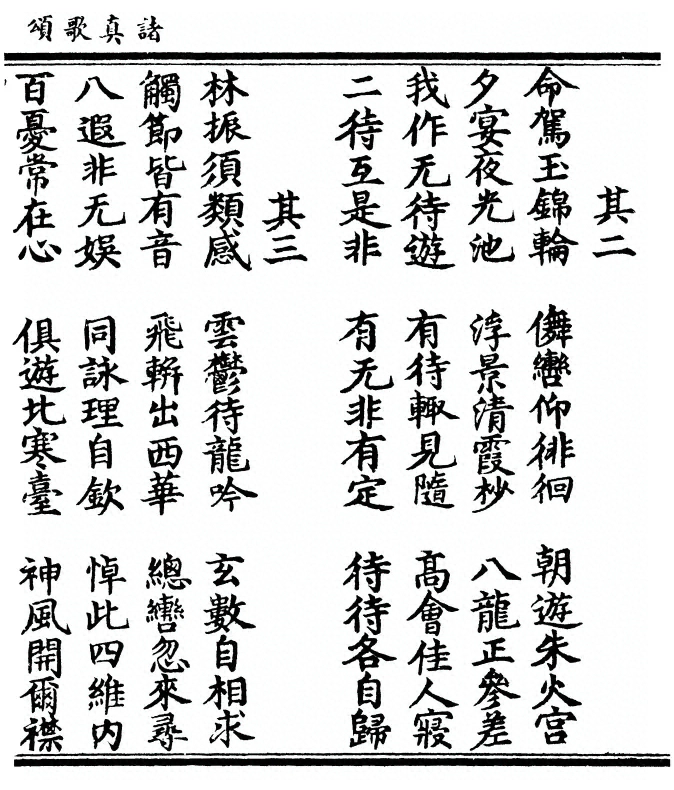 諸真歌頌
其二
命駕玉錦輪　儛轡仰徘徊　朝遊朱火宮
夕宴夜光池　浮景清霞杪　八龍正參差
我作无待遊　有待輙見隨　高會佳人寢
二待互是非　有无非有定　待待各自歸
其三
林振須類感　雲鬱待龍吟　玄數自相求
觸節皆有音　飛軿出西華　總轡忽來尋
八遐非无娛　同詠理自欽　悼此四維內
百憂常在心　俱遊北寒臺　神風開爾襟